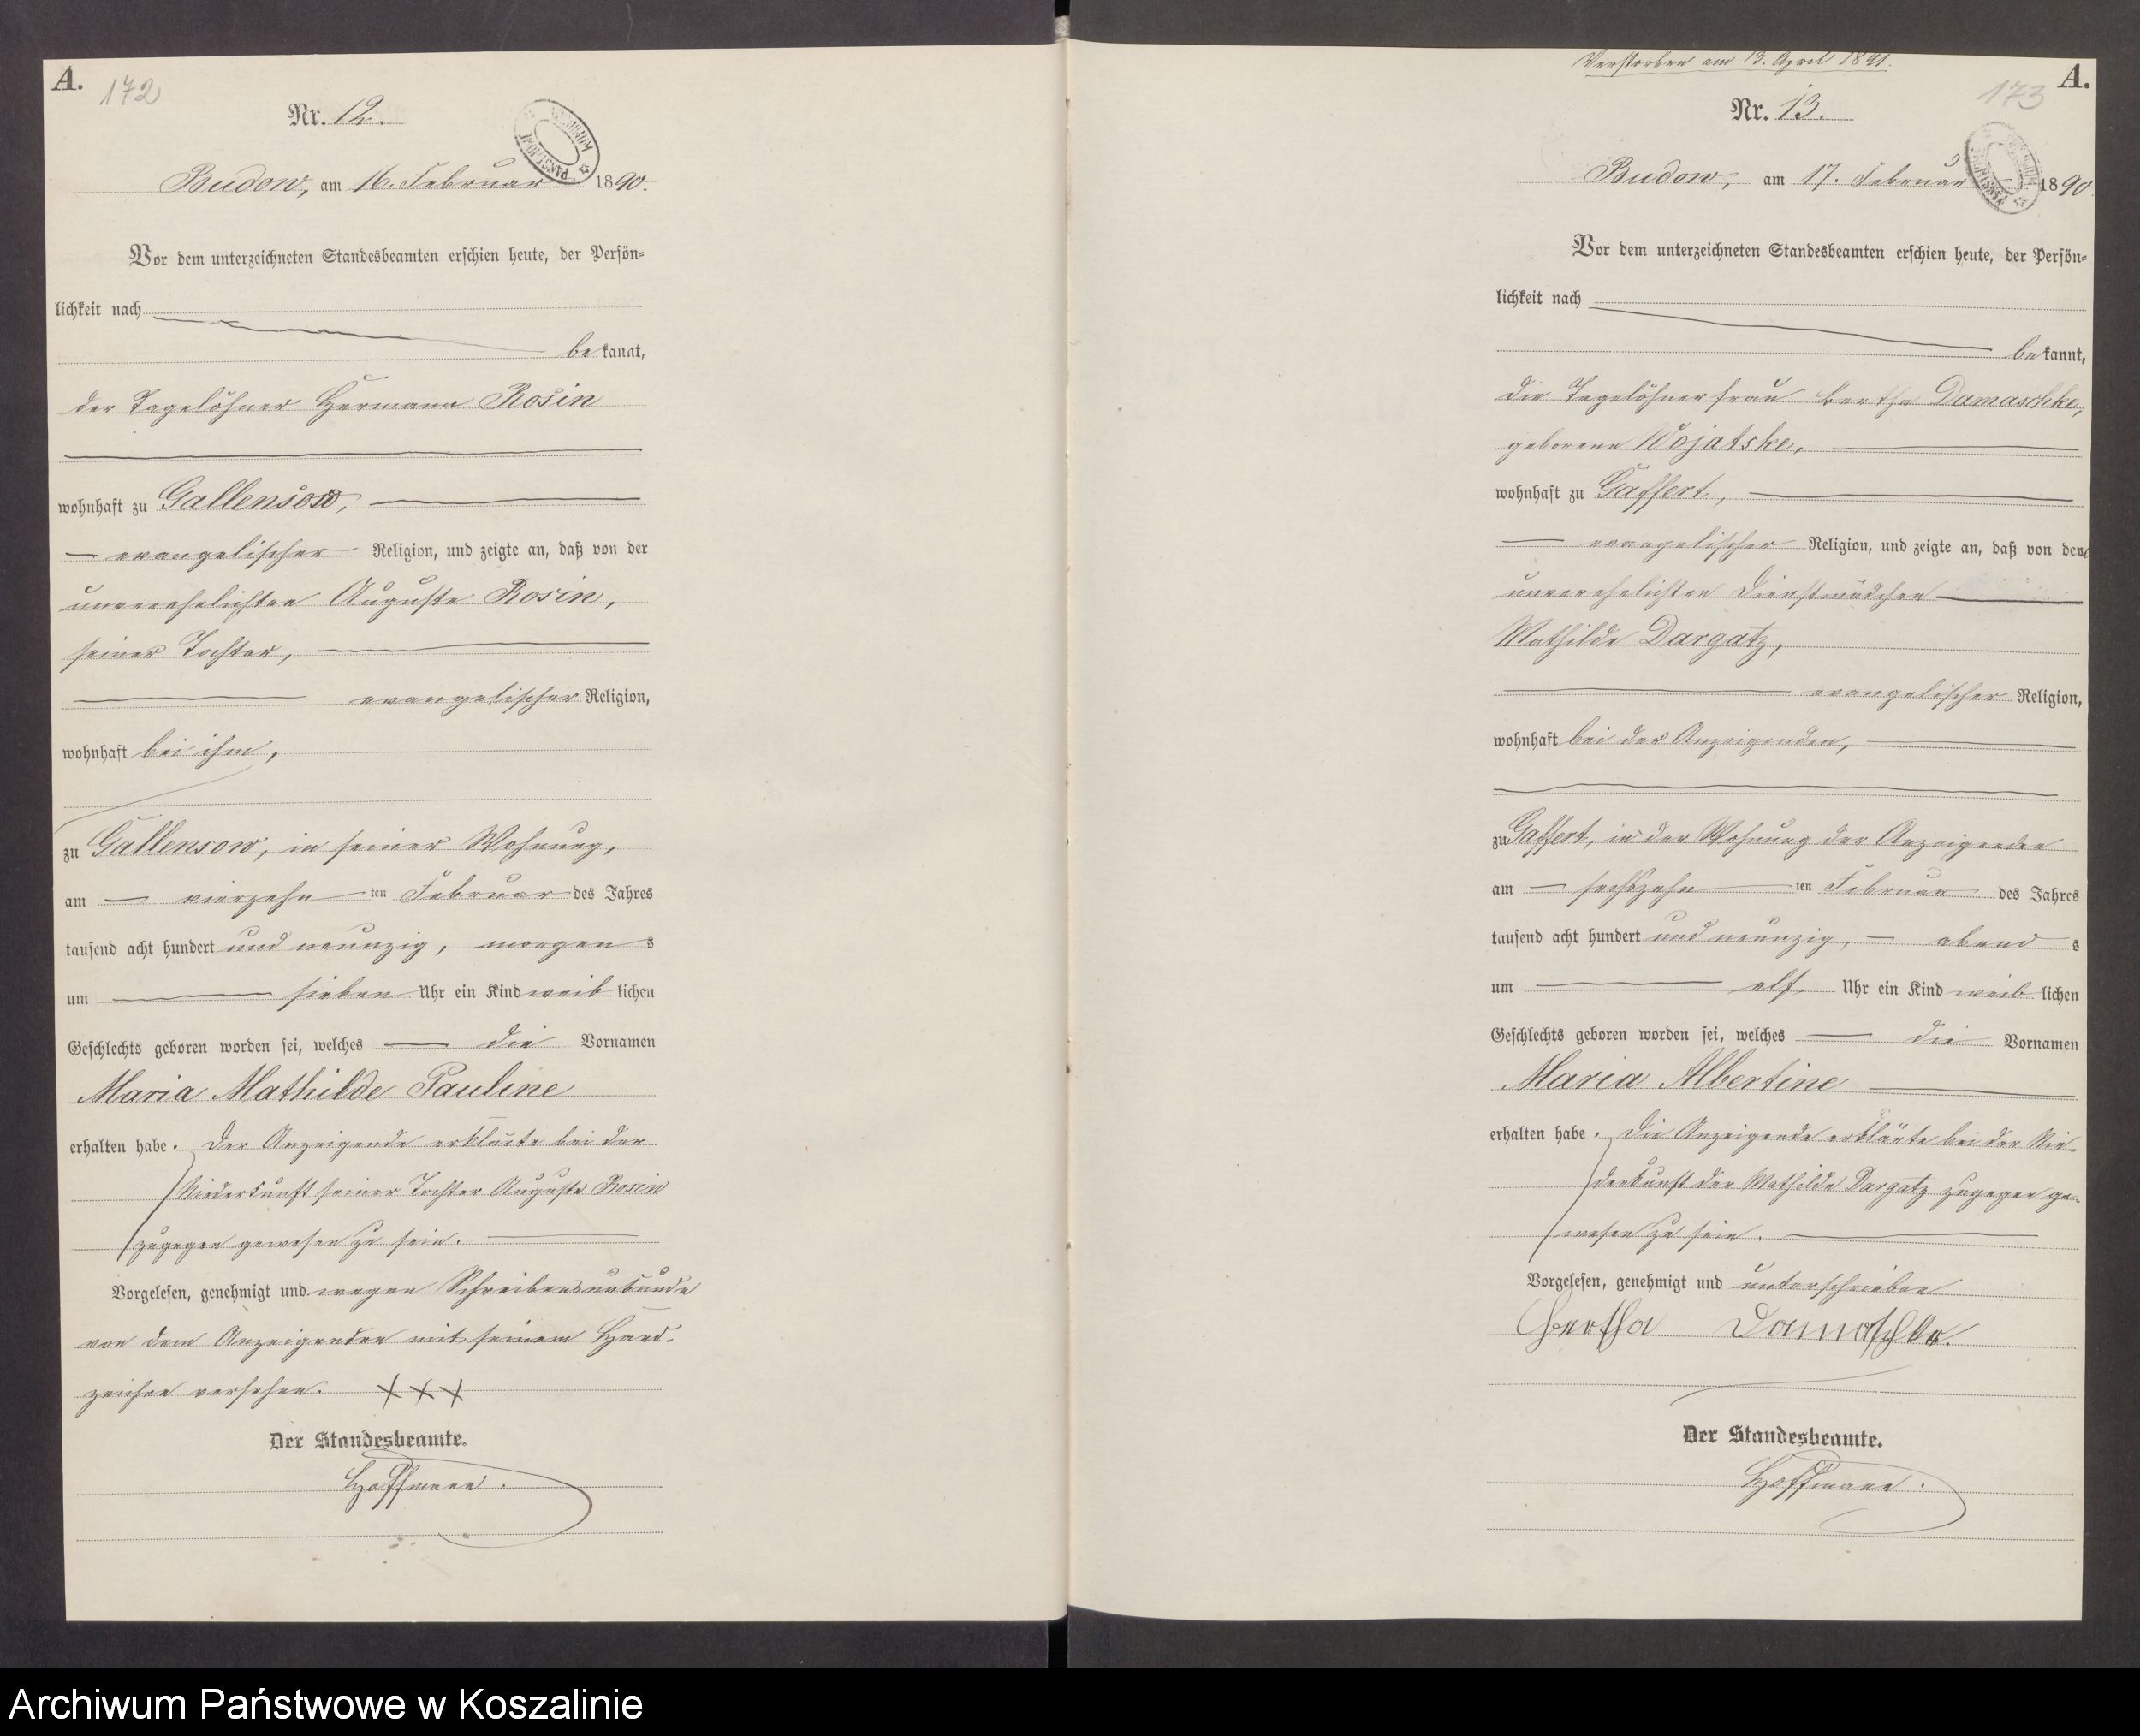 A.
172
Nr. 12.
Budow, am 16. Februar 1890.
Vor dem unterzeichneten Standesbeamten erschien heute, der Persön=
lichkeit nach
bekannt,
der Tagelöhner Hermann Rosin
wohnhaft zu Gallensow,
evangelischer Religion, und zeigte an, daß von der
unverehelichten Auguste Rosin,
seiner Tochter,
evangelischer Religion,
wohnhaft bei ihm,
zu Gallensow, in seiner Wohnung,
am vierzehn ten Februar des Jahres
tausend acht hundert und neunzig, morgens
um sieben Uhr ein Kind weiblichen
Geschlechts geboren worden sei, welches die Vornamen
Maria Mathilde Pauline
erhalten habe. Der Anzeigende erklärte bei der
Niederkunft seiner Tochter Auguste Rosin
zugegen gewesen zu sein.
Vorgelesen, genehmigt und wegen Schreibensunkunde
von dem Anzeigenden mit seinem Hand-
zeichen versehen. XXX
Der Standesbeamte.
Hoffmann.
Verstorben am 13. April 1891.
A.
173
Nr. 13.
Budow, am 17. Februar 1890
Vor dem unterzeichneten Standesbeamten erschien heute, der Persön=
lichkeit nach
bekannt,
die Tagelöhnerfrau Bertha Damaschke,
geborene Wojatske,
wohnhaft zu Gaffert,
evangelischer Religion, und zeigte an, daß von dem
unverehelichten Dienstmädchen
Mathilde Dargatz,
evangelischer Religion,
wohnhaft bei der Anzeigenden,
zu Gaffert, in der Wohnung der Anzeigenden
am sechszehn ten Februar des Jahres
tausend acht hundert und neunzig, abends
um elf Uhr ein Kind weiblichen
Geschlechts geboren worden sei, welches die Vornamen
Maria Albertine
erhalten habe. Die Anzeigende erklärte bei der Nie-
derkunft der Mathilde Dargatz zugegen ge-
wesen zu sein.
Vorgelesen, genehmigt und unterschrieben
Bertha Damaschke.
Der Standesbeamte.
Hoffmann.
Archiwum Państwowe w Koszalinie